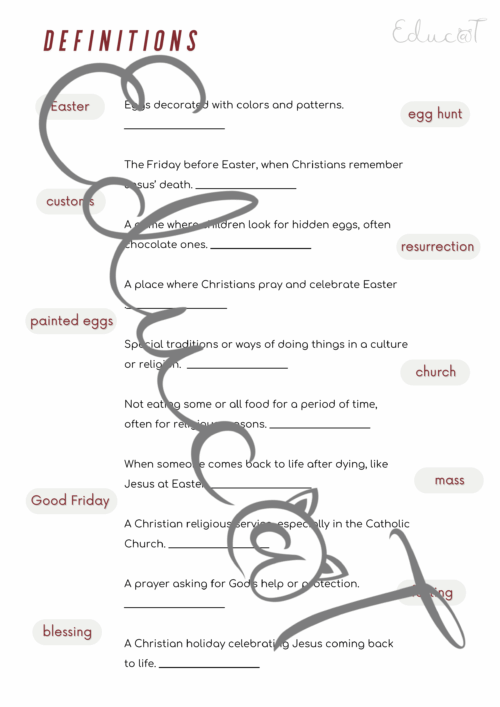 DEFINITIONS
Educ@T
Easter
Eggs decorated with colors and patterns.
egg hunt
The Friday before Easter, when Christians remember
Jesus' death.
customs
A game where children look for hidden eggs, often
chocolate ones.
resurrection
A place where Christians pray and celebrate Easter
painted eggs
Special traditions or ways of doing things in a culture
or religion.
church
Not eating some or all food for a period of time,
often for religious reasons.
When someone comes back to life after dying, like
Jesus at Easter
mass
Good Friday
A Christian religious service, especially in the Catholic
Church.
A prayer asking for God's help or protection.
blessing
A Christian holiday celebrating Jesus coming back
to life.
Educ@T